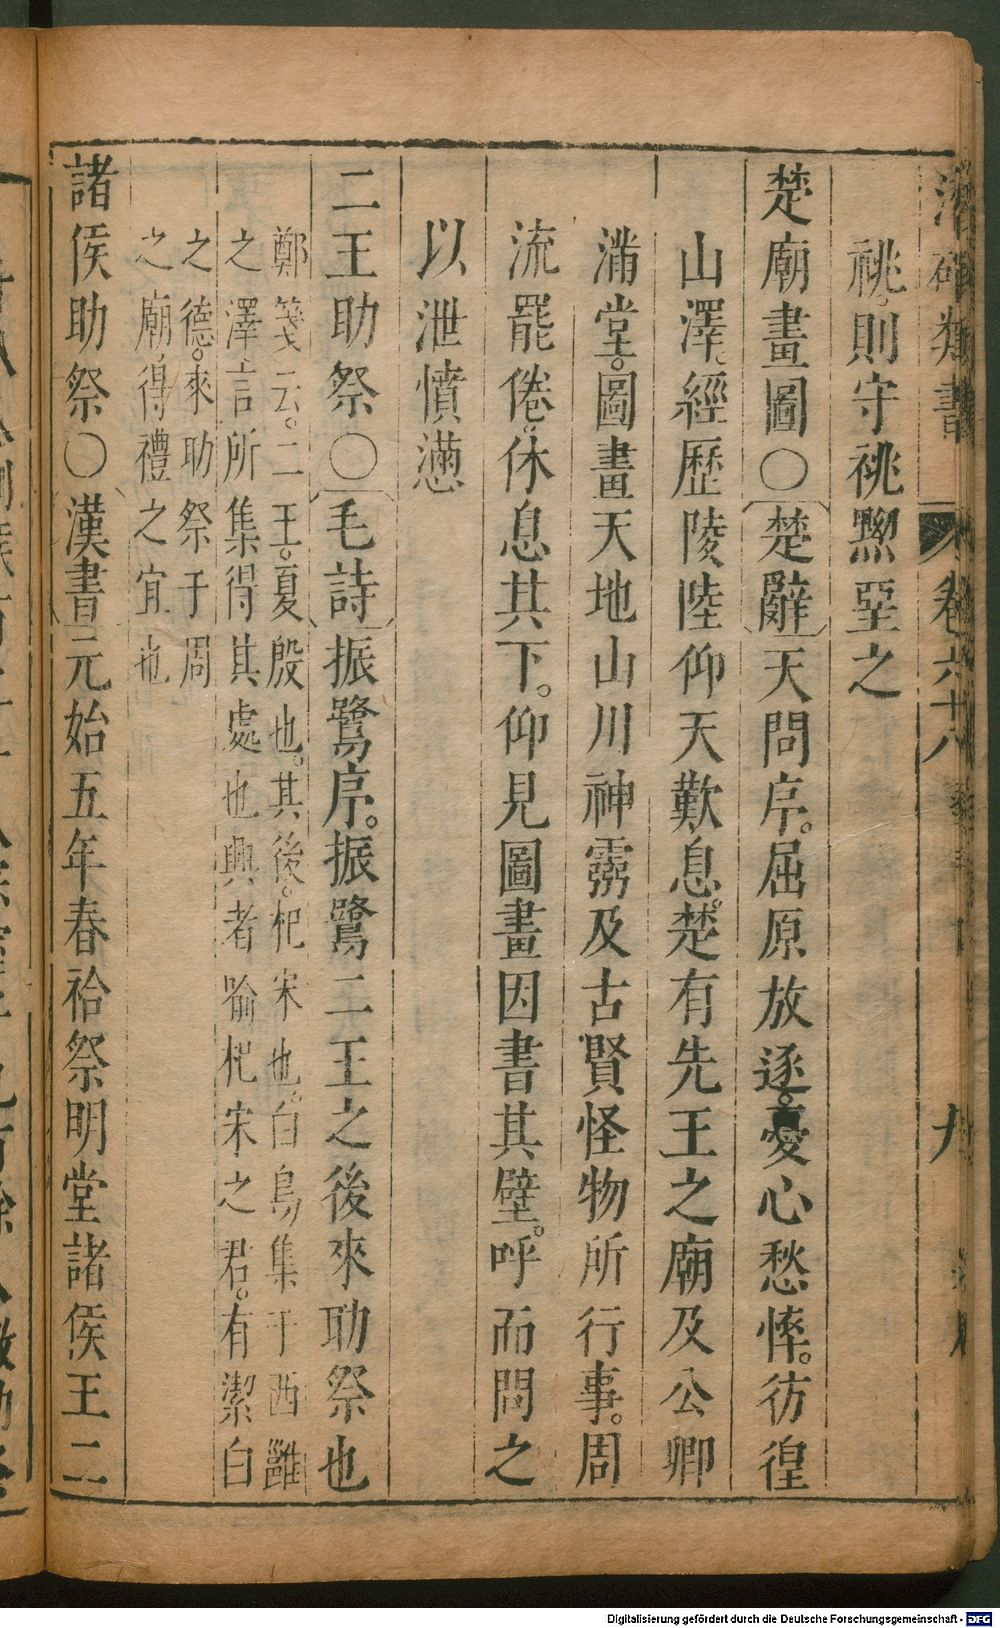 潛確類書 卷六十八 九
祧則守祧黝堊之
楚廟畫圖○楚辭天問序。屈原放逐。憂心愁悴。彷徨
山澤。經歷陵陸仰天歎息。楚有先王之廟及公卿
潲堂。圖畫天地山川神霛及古賢怪物所行事。周
流罷倦。休息其下。仰見圖畫因書其壁。呼而問之
以泄憤懣
二王助祭○毛詩振鷺序。振鷺二王之後來助祭也
鄭箋云。二王。夏殷也。其後。杞宋也。白鳥集于西雝
之澤。言所集得其處也興者喻杞宋之君。有潔白
之德。來助祭于周
之廟。得禮之宜也
諸侯助祭○漢書元始五年春祫祭明堂諸侯王二
Digitalisierung gefördert durch die Deutsche Forschungsgemeinschaft - DFG